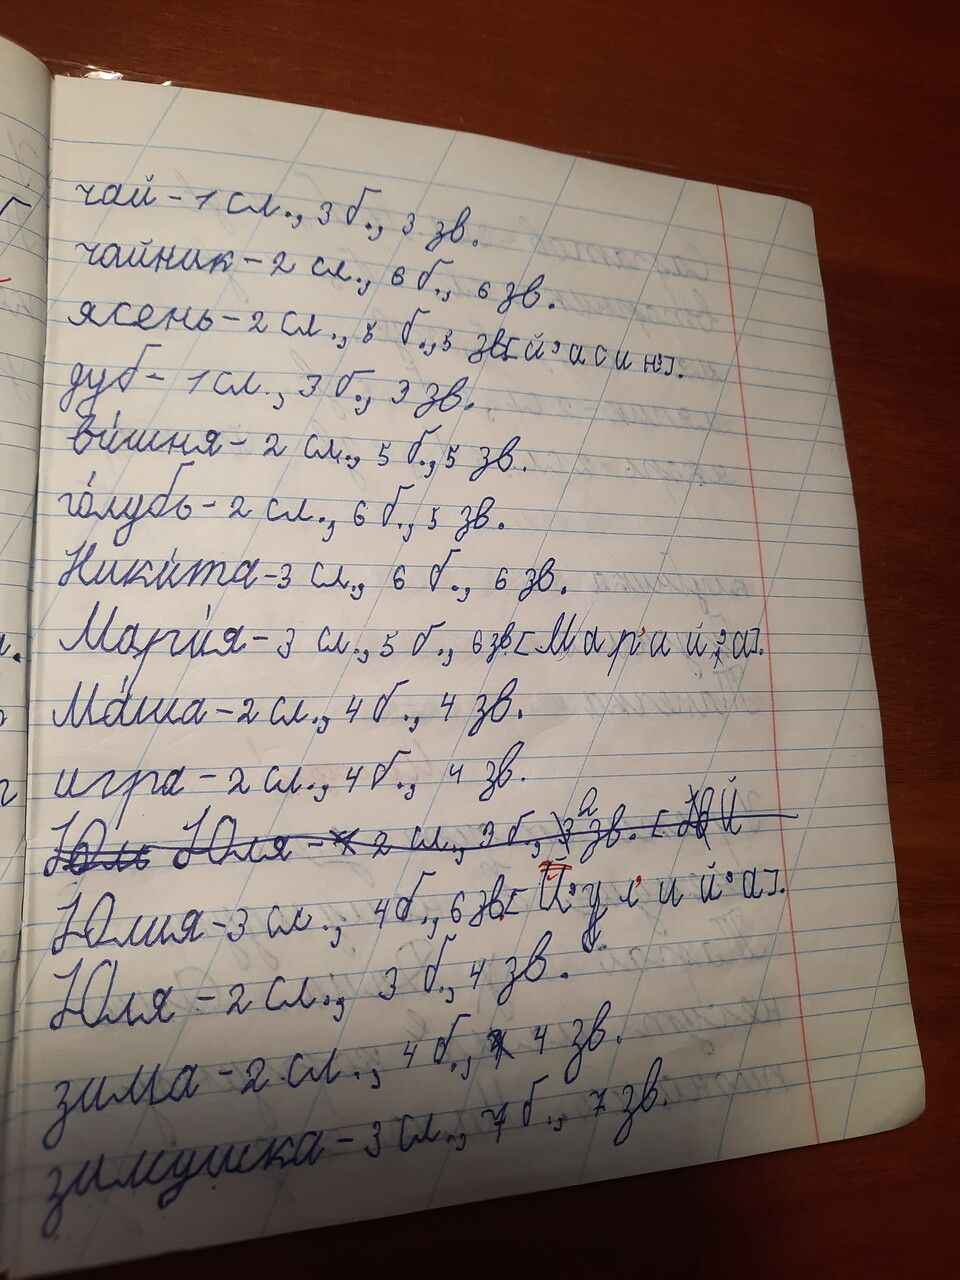 чай - 1 сл., 3 б., 3 зв.
чайник - 2 сл., 6 б., 6 зв.
ясень - 2 сл., 5 б., 5 зв. [й' а с и н'].
дуб - 1 сл., 3 б., 3 зв.
ви́шня - 2 сл., 5 б., 5 зв.
го́лубь - 2 сл., 6 б., 5 зв.
Ники́та - 3 сл., 6 б., 6 зв.
Мари́я - 3 сл., 5 б., 6 зв. [М а р' и й' а].
Ма́ша - 2 сл., 4 б., 4 зв.
игра - 2 сл., 4 б., 4 зв.
Юль Юля - 2 сл., 3 б., 2 зв. [ Й
Юлия - 3 сл., 4 б., 6 зв. [Й' у л' и й' а].
Юля - 2 сл., 3 б., 4 зв.
зима - 2 сл., 4 б., 4 зв.
зимушка - 3 сл., 7 б., 7 зв.